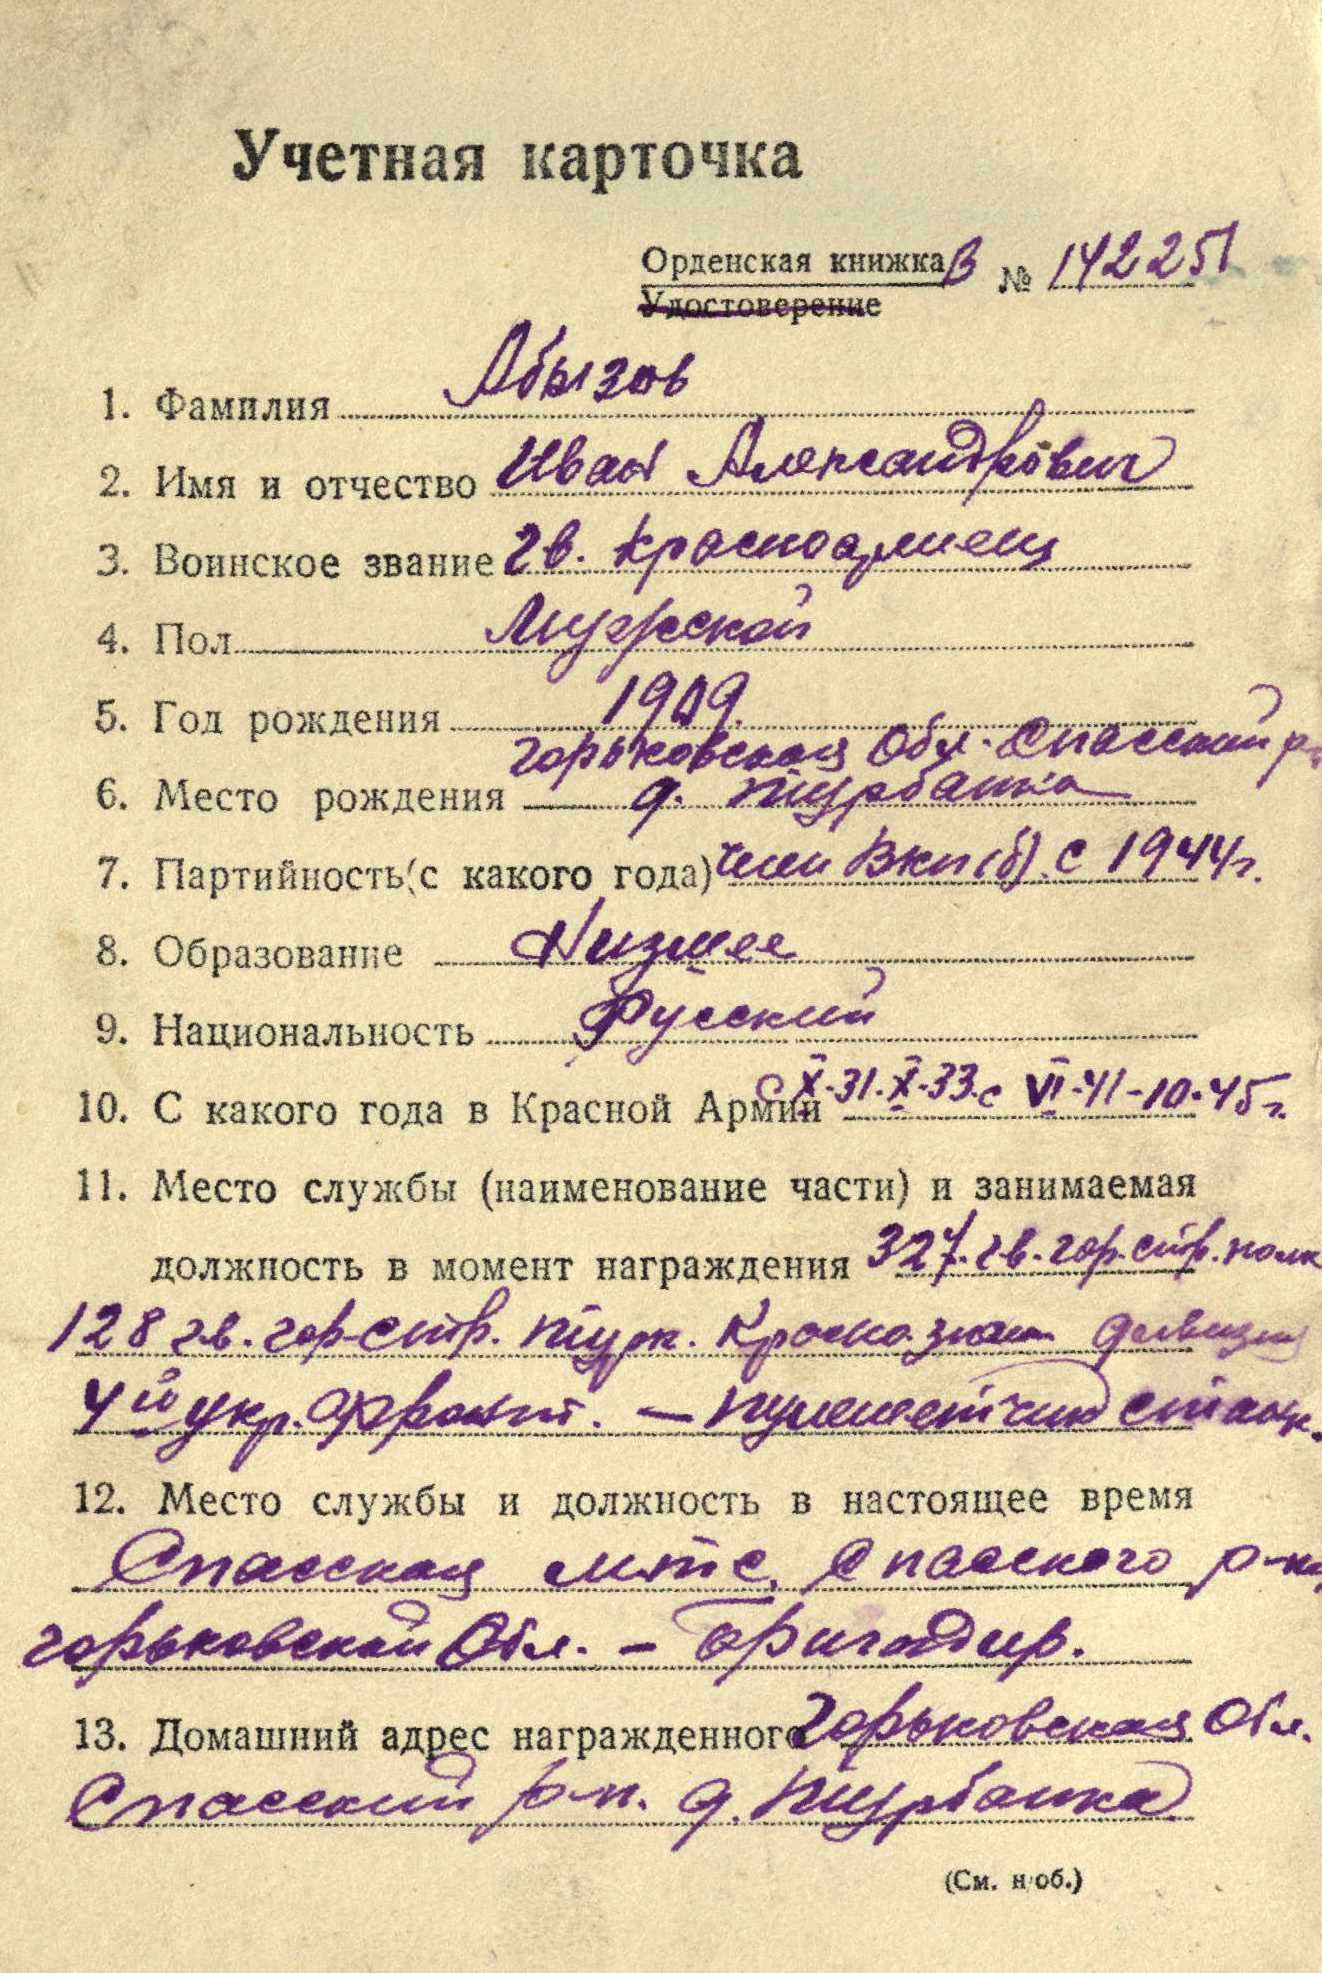 Учетная карточка
Орденская книжка В № 142251
Удостоверение
1. Фамилия Абызов
2. Имя и отчество Иван Александрович
3. Воинское звание гв. красноармеец
4. Пол Мужской
5. Год рождения 1909.
Горьковская Обл. Спасский р-
6. Место рождения д. Турбанка
7. Партийность (с какого года) член ВКП(б). с 1944 г.
8. Образование Низшее
9. Национальность Русский
10. С какого года в Красной Армии с X-31. X-33. с VI-41-10.45 г.
11. Место службы (наименование части) и занимаемая
должность в момент награждения 327. гв. гор. стр. полк
128 гв. гор-стр. Турк. Краснознам дивизии
4й укр. фронт. — пулеметчик станк.
12. Место службы и должность в настоящее время
Спасская мтс, Спасского р-на
Горьковской Обл. — бригадир.
13. Домашний адрес награжденного Горьковская Обл.
Спасский р-н. д. Турбанка
(См. н/об.)